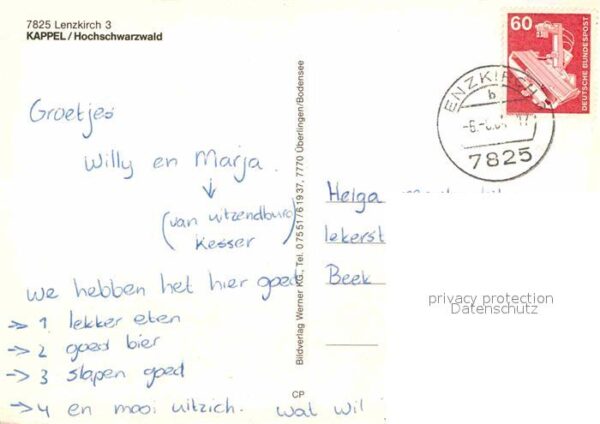 7825 Lenzkirch 3
KAPPEL / Hochschwarzwald
60
DEUTSCHE BUNDESPOST
ENZKIRCH
b
7825
Groetjes
Willy en Marja.
(van uitzendburo
Kesser)
we hebben het hier goed
→ 1 lekker eten
→ 2 goed bier
→ 3 slapen goed
→ 4 en mooi uitzich. wat wil
Bildverlag Werner KG., Tel. 0 75 51 / 6 19 37, 7770 Überlingen/Bodensee
CP
Helga
lekerst
Beek
privacy protection
Datenschutz